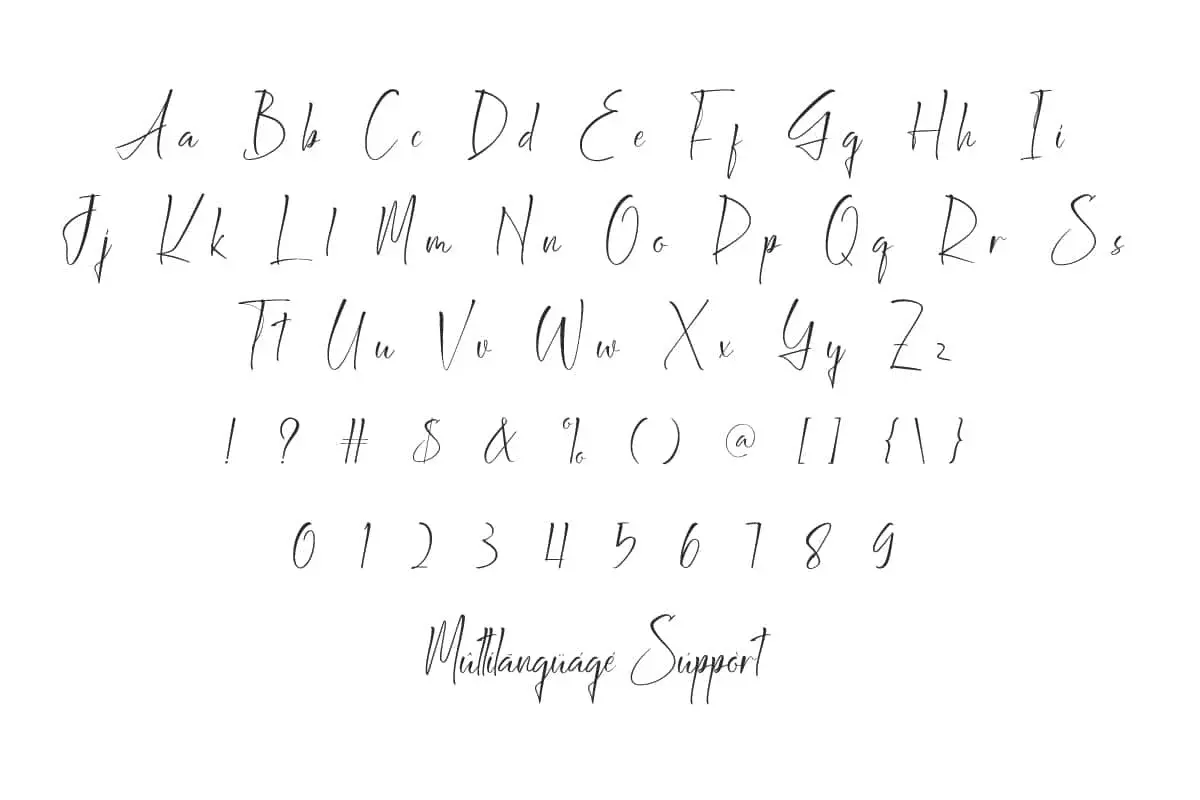 Aa Bb Cc Dd Ee Ff Gg Hh Ii
Jj Kk Ll Mm Nn Oo Pp Qq Rr Ss
Tt Uu Vv Ww Xx Yy Zz
! ? # $ & % ( ) @ [ ] { \ }
0 1 2 3 4 5 6 7 8 9
Mûltílãngüágé Súppórt